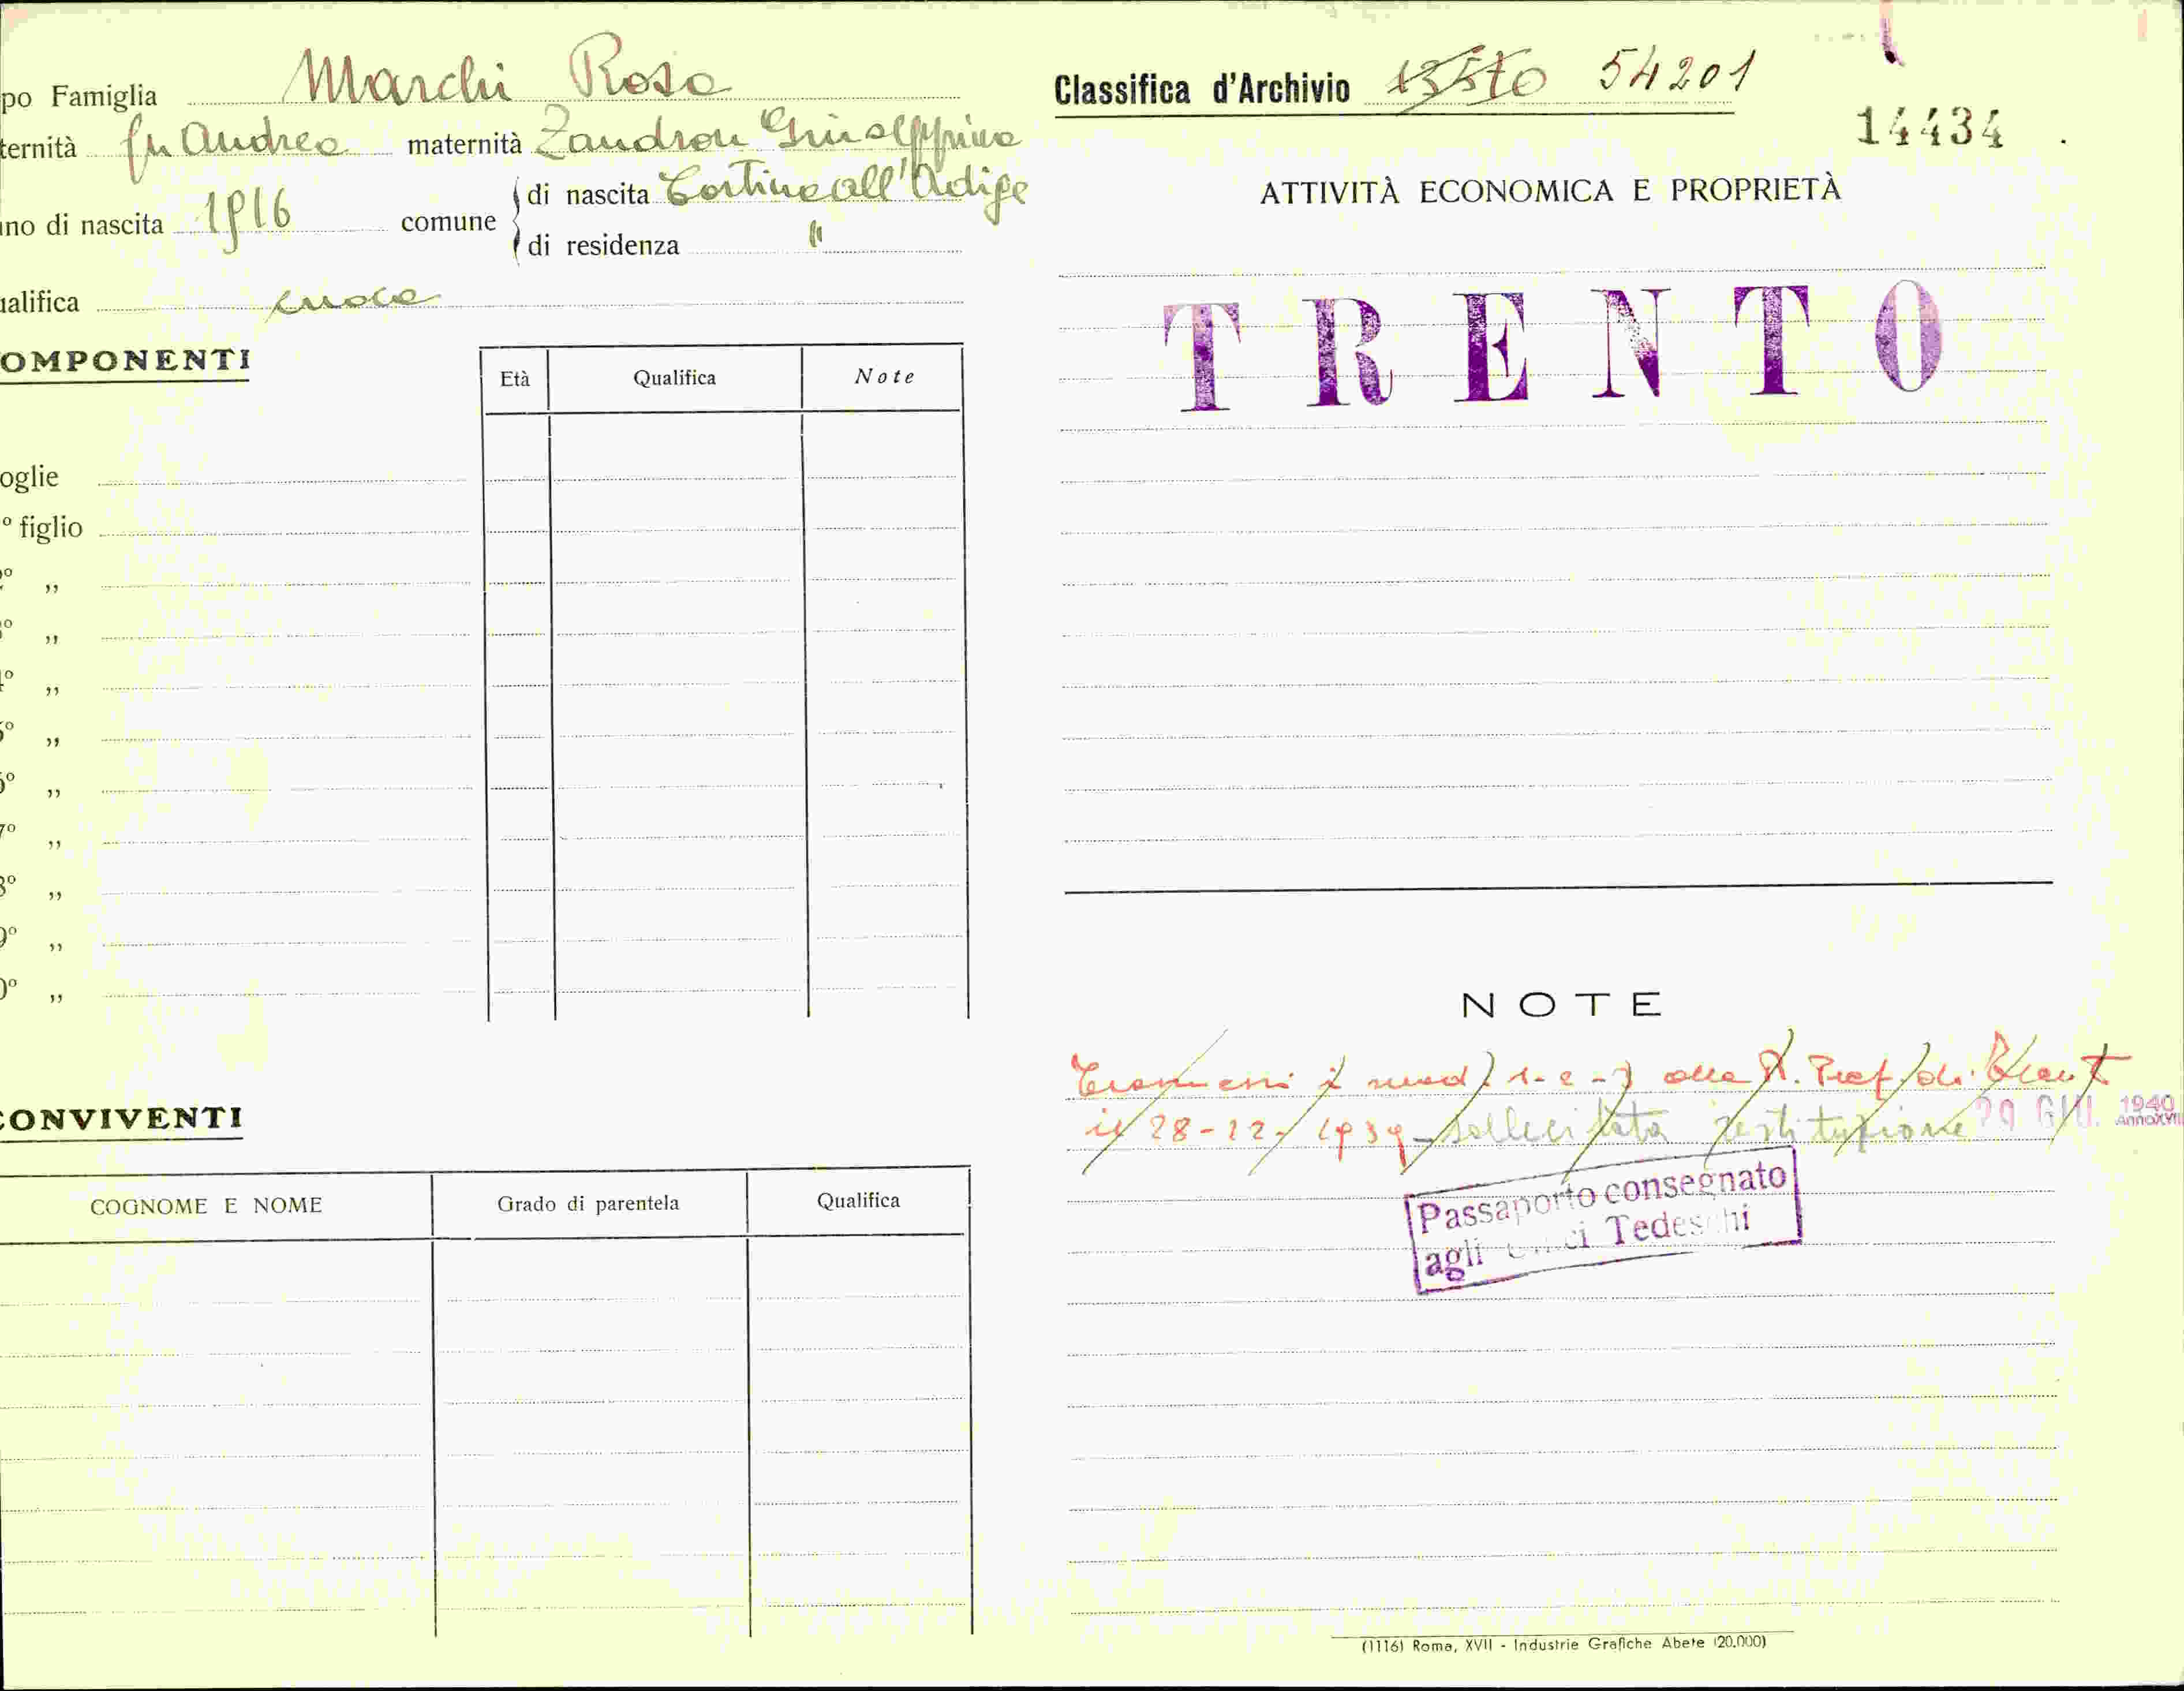 po Famiglia Marchi Rosa
ternità fu Andrea maternità Zandron Giuseppina
no di nascita 1916 comune di nascita Cortina all'Adige
di residenza "
alifica cuoca
OMPONENTI
Età Qualifica Note
oglie
º figlio
º "
º "
º "
º "
º "
7º "
8º "
9º "
0º "
CONVIVENTI
COGNOME E NOME Grado di parentela Qualifica
Classifica d'Archivio 13570 54201
14434 .
ATTIVITÀ ECONOMICA E PROPRIETÀ
TRENTO
NOTE
Trasmessi i mod. 1-2-3 alla R. Pref. di
il 28-12-1939 - sollecitata restituzione 29 GIU. 1940
Anno XVIII
Passaporto consegnato
agli Tedeschi
(1116) Roma, XVII - Industrie Grafiche Abete (20.000)